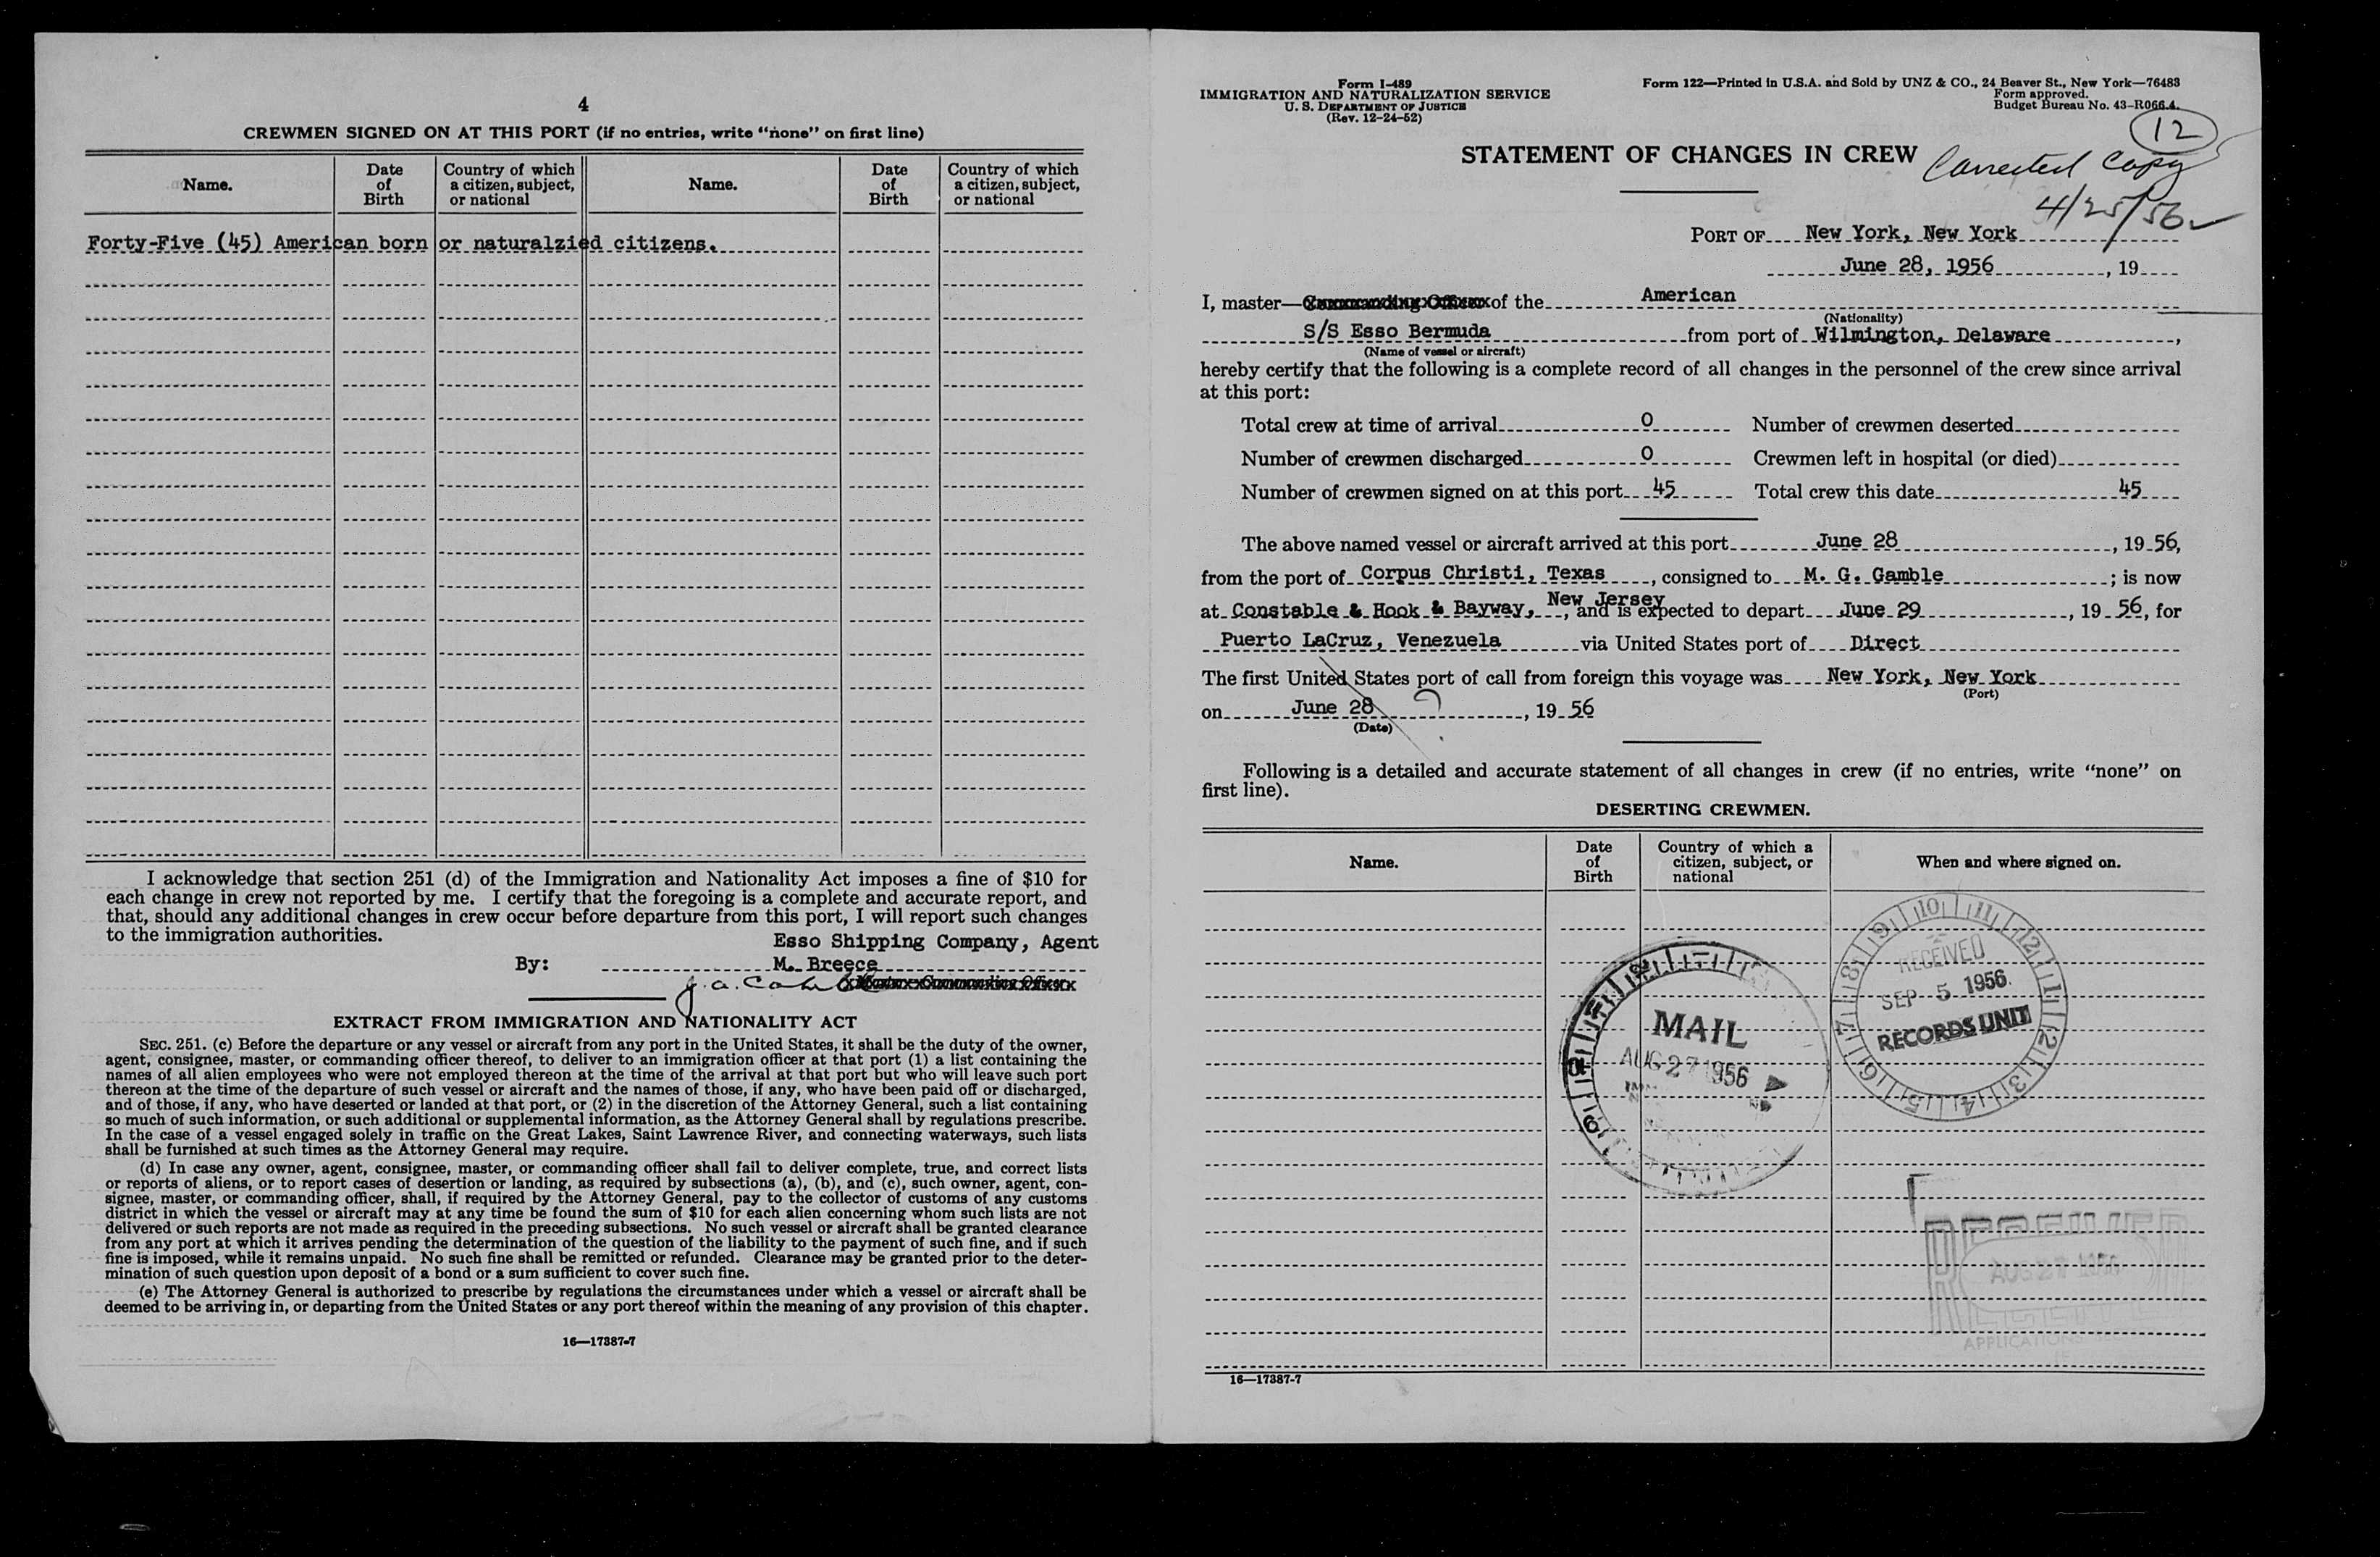 4
CREWMEN SIGNED ON AT THIS PORT (if no entries, write "none" on first line)
Name.
Date of Birth
Country of which a citizen, subject, or national
Name.
Date of Birth
Country of which a citizen, subject, or national
Forty-Five (45) American born or naturalzied citizens.
I acknowledge that section 251 (d) of the Immigration and Nationality Act imposes a fine of $10 for
each change in crew not reported by me. I certify that the foregoing is a complete and accurate report, and
that, should any additional changes in crew occur before departure from this port, I will report such changes
to the immigration authorities.
Esso Shipping Company, Agent
By: M. Breece
J. a.
EXTRACT FROM IMMIGRATION AND NATIONALITY ACT
SEC. 251. (c) Before the departure or any vessel or aircraft from any port in the United States, it shall be the duty of the owner,
agent, consignee, master, or commanding officer thereof, to deliver to an immigration officer at that port (1) a list containing the
names of all alien employees who were not employed thereon at the time of the arrival at that port but who will leave such port
thereon at the time of the departure of such vessel or aircraft and the names of those, if any, who have been paid off or discharged,
and of those, if any, who have deserted or landed at that port, or (2) in the discretion of the Attorney General, such a list containing
so much of such information, or such additional or supplemental information, as the Attorney General shall by regulations prescribe.
In the case of a vessel engaged solely in traffic on the Great Lakes, Saint Lawrence River, and connecting waterways, such lists
shall be furnished at such times as the Attorney General may require.
(d) In case any owner, agent, consignee, master, or commanding officer shall fail to deliver complete, true, and correct lists
or reports of aliens, or to report cases of desertion or landing, as required by subsections (a), (b), and (c), such owner, agent, con-
signee, master, or commanding officer, shall, if required by the Attorney General, pay to the collector of customs of any customs
district in which the vessel or aircraft may at any time be found the sum of $10 for each alien concerning whom such lists are not
delivered or such reports are not made as required in the preceding subsections. No such vessel or aircraft shall be granted clearance
from any port at which it arrives pending the determination of the question of the liability to the payment of such fine, and if such
fine is imposed, while it remains unpaid. No such fine shall be remitted or refunded. Clearance may be granted prior to the deter-
mination of such question upon deposit of a bond or a sum sufficient to cover such fine.
(e) The Attorney General is authorized to prescribe by regulations the circumstances under which a vessel or aircraft shall be
deemed to be arriving in, or departing from the United States or any port thereof within the meaning of any provision of this chapter.
16—17387-7
Form I-489
IMMIGRATION AND NATURALIZATION SERVICE
U. S. DEPARTMENT OF JUSTICE
(Rev. 12-24-52)
Form 122—Printed in U.S.A. and Sold by UNZ & CO., 24 Beaver St., New York—76483
Form approved.
Budget Bureau No. 43-R066.4.
12
STATEMENT OF CHANGES IN CREW
Corrected Copy
4/25/56
PORT OF New York, New York
June 28, 1956, 19
I, master— of the American
(Nationality)
S/S Esso Bermuda from port of Wilmington, Delaware,
(Name of vessel or aircraft)
hereby certify that the following is a complete record of all changes in the personnel of the crew since arrival
at this port:
Total crew at time of arrival 0 Number of crewmen deserted
Number of crewmen discharged 0 Crewmen left in hospital (or died)
Number of crewmen signed on at this port 45 Total crew this date 45
The above named vessel or aircraft arrived at this port June 28, 19 56,
from the port of Corpus Christi, Texas, consigned to M. G. Gamble; is now
at Constable & Hook & Bayway, New Jersey, and is expected to depart June 29, 19 56, for
Puerto LaCruz, Venezuela via United States port of Direct
The first United States port of call from foreign this voyage was New York, New York
(Port)
on June 28 ?, 19 56
(Date)
Following is a detailed and accurate statement of all changes in crew (if no entries, write "none" on
first line).
DESERTING CREWMEN.
Name.
Date of Birth
Country of which a citizen, subject, or national
When and where signed on.
MAIL
AUG 27 1956
10 11 12 1 2 3 4 5 6 7 8 9
RECEIVED
SEP 5 1956
RECORDS UNIT
RECEIVED
AUG 27 1956
APPLICATIONS
16—17387-7